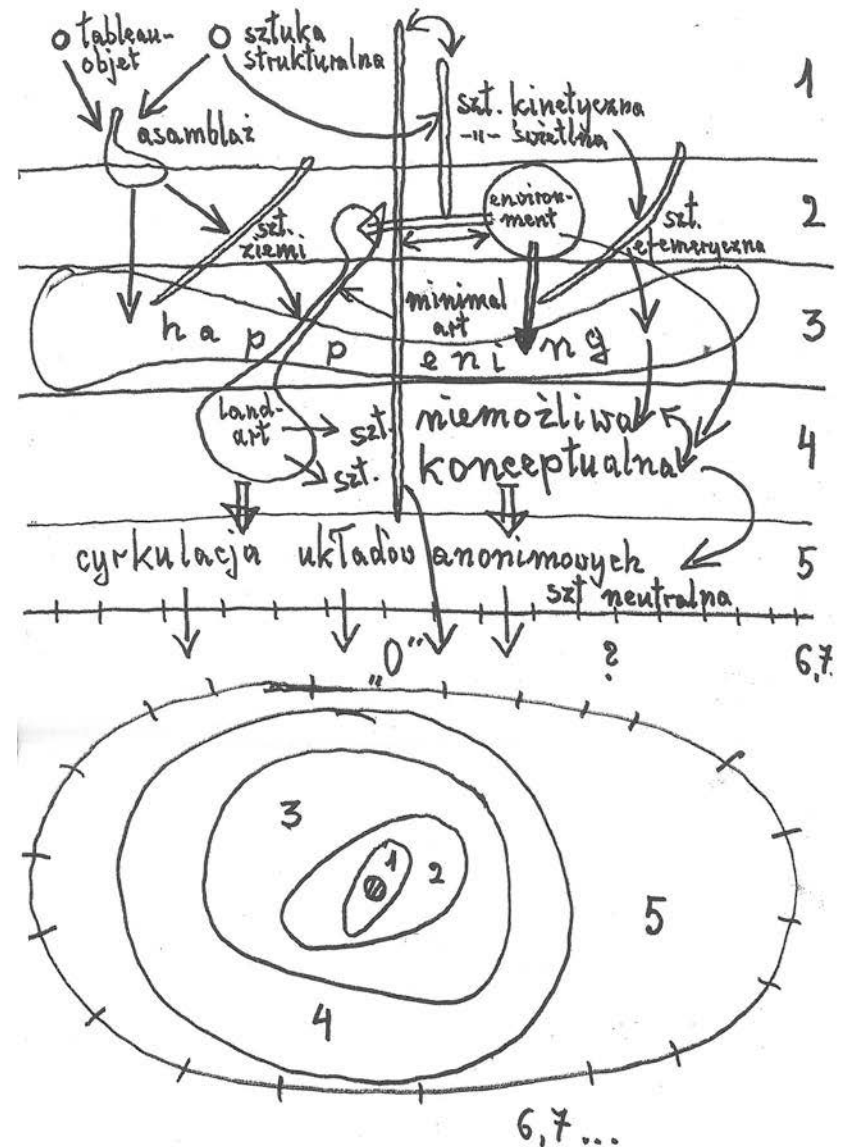 tableau-
objet
sztuka
strukturalna
1
asamblaż
szt. kinetyczna
-"- świetlna
2
environ-
ment
szt.
ziemi
szt.
efemeryczna
minimal
art
3
happening
land-
art
szt.
szt.
niemożliwa
konceptualna
4
cyrkulacja układów anonimowych
5
szt neutralna
"0"
?
6,7
3
1
2
5
4
6,7...